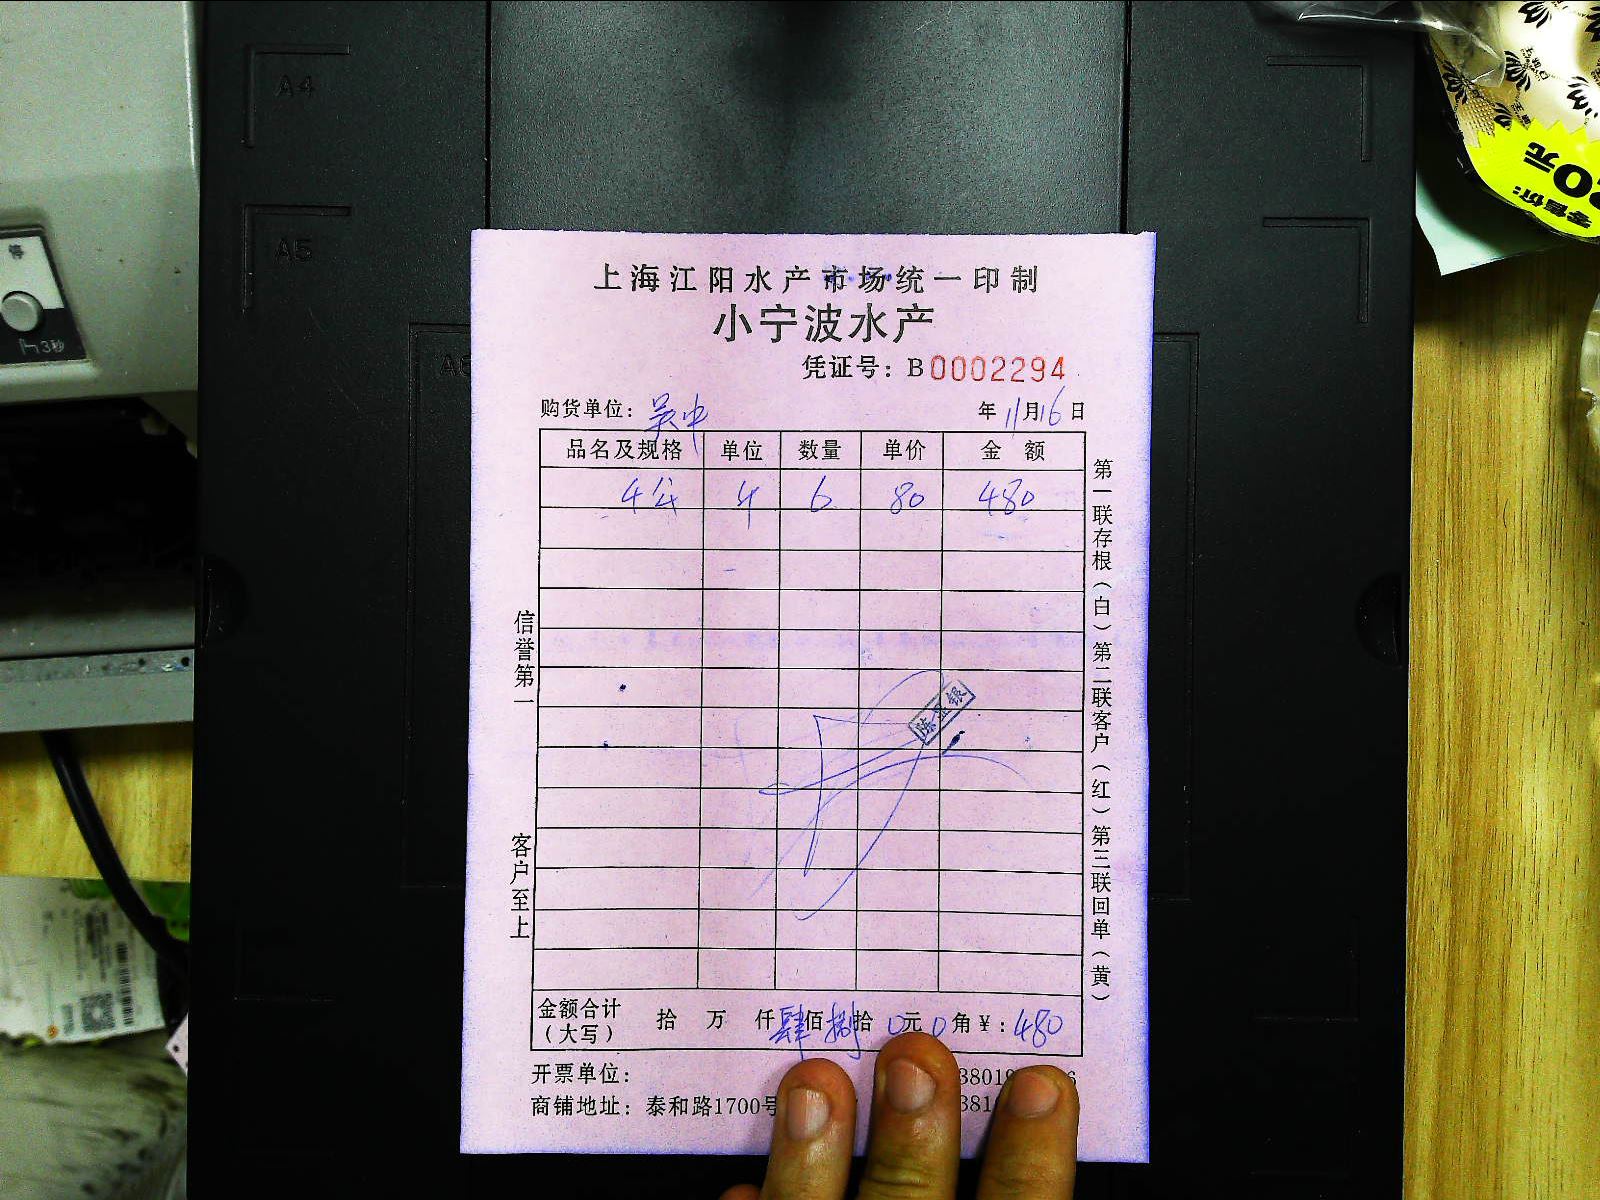 A4
A5
停
3秒
零售价:
元
上海江阳水产市场统一印制
小宁波水产
凭证号: B0002294
购货单位: 吴中 年11月16日
品名及规格 单位 数量 单价 金额
4 6 80 480
陈显银
信誉第一
客户至上
第一联存根(白)第二联客户(红)第三联回单(黄)
金额合计(大写) 拾 万 仟肆佰捌拾0元0角¥:480
开票单位:
商铺地址: 泰和路1700号